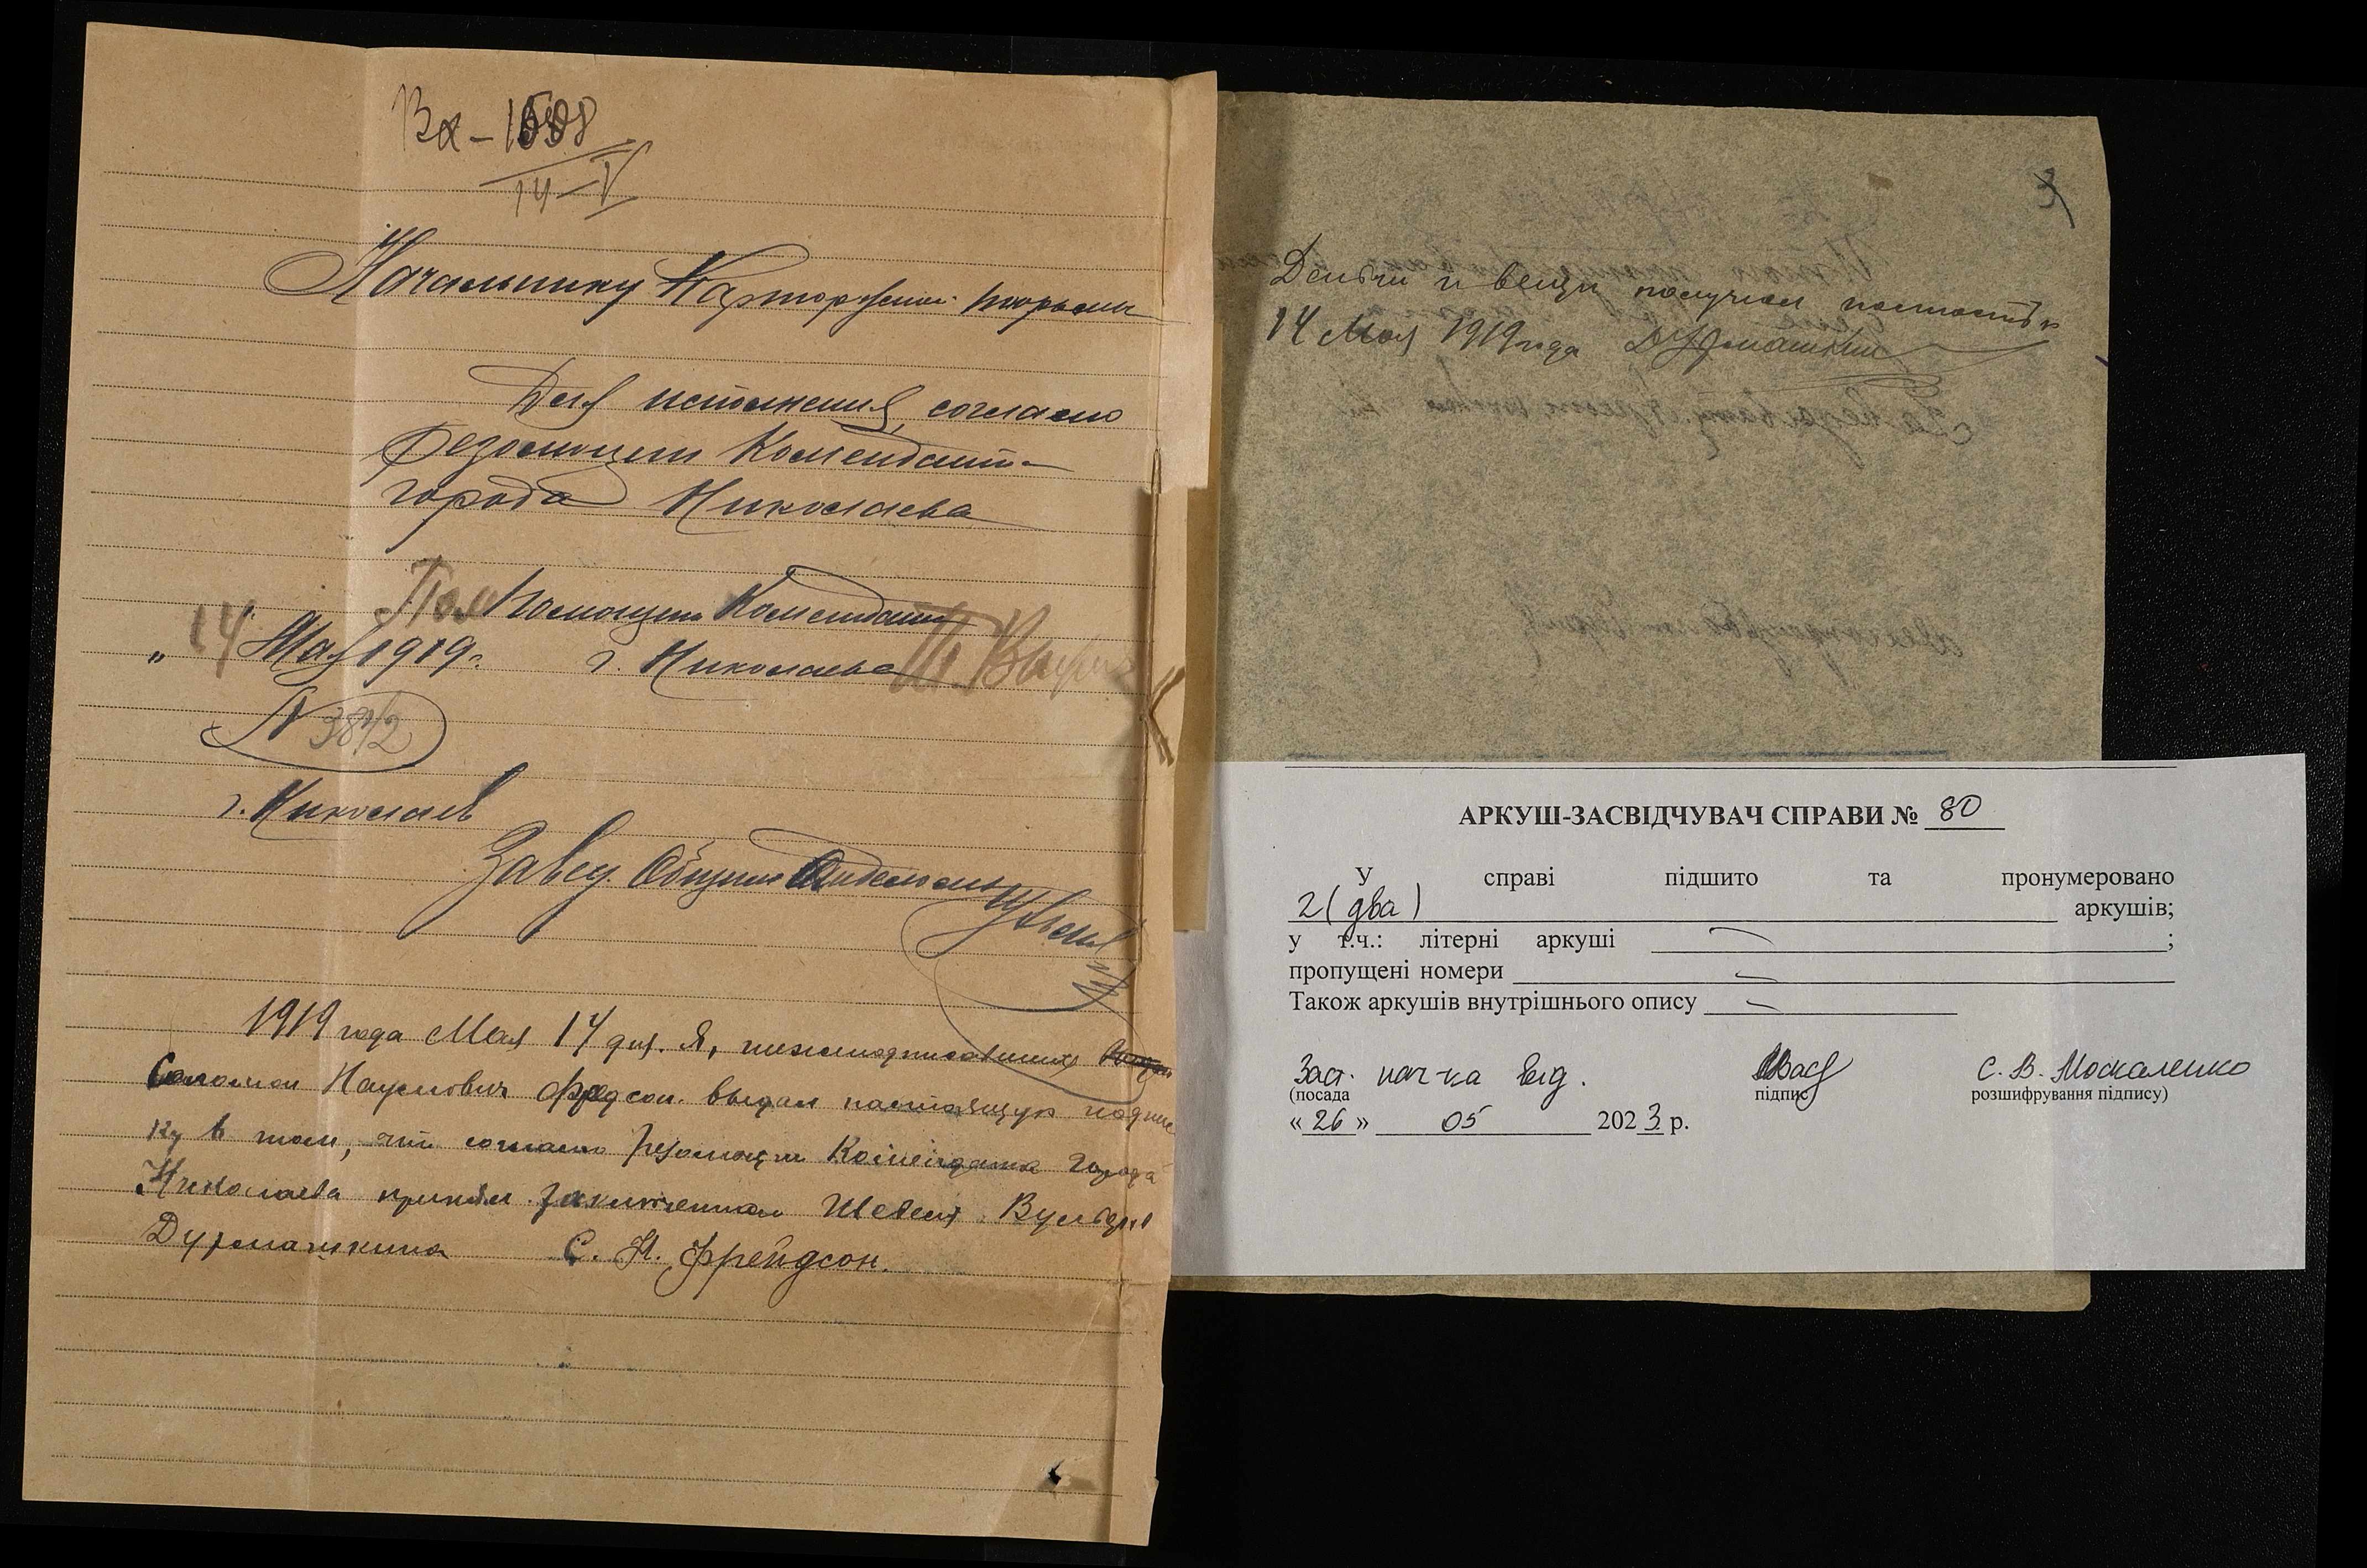 Вх-1588
14-V
Начальнику Каторжной тюрьмы
Для исполнения, согласно
Резолюции Коменданта
города Николаева
Пом Помощник Коменданта
"14" Мая 1919 г. г. Николаева
№ 3812
г. Николаев
Завед. Общим Отделом
1919 года Мая 14 дня. Я, нижеподписавшийся
Соломон Наумович Фредсон. выдал настоящую подпис
ку в том, что согласно Резолюции Коменданта города
Николаева принял заключенного Шевеля Вульфа
Дурмашкина С. Н. Фрейдсон.
3
Деньги и вещи получил полностью
14 Мая 1919 года Дурмашкин
АРКУШ-ЗАСВІДЧУВАЧ СПРАВИ № 80
У справі підшито та пронумеровано
2 (два) аркушів;
у т.ч.: літерні аркуші — ;
пропущені номери —
Також аркушів внутрішнього опису —
Заст. нач-ка від. С. В. Москаленко
(посада підпис розшифрування підпису)
«26» 05 2023 р.